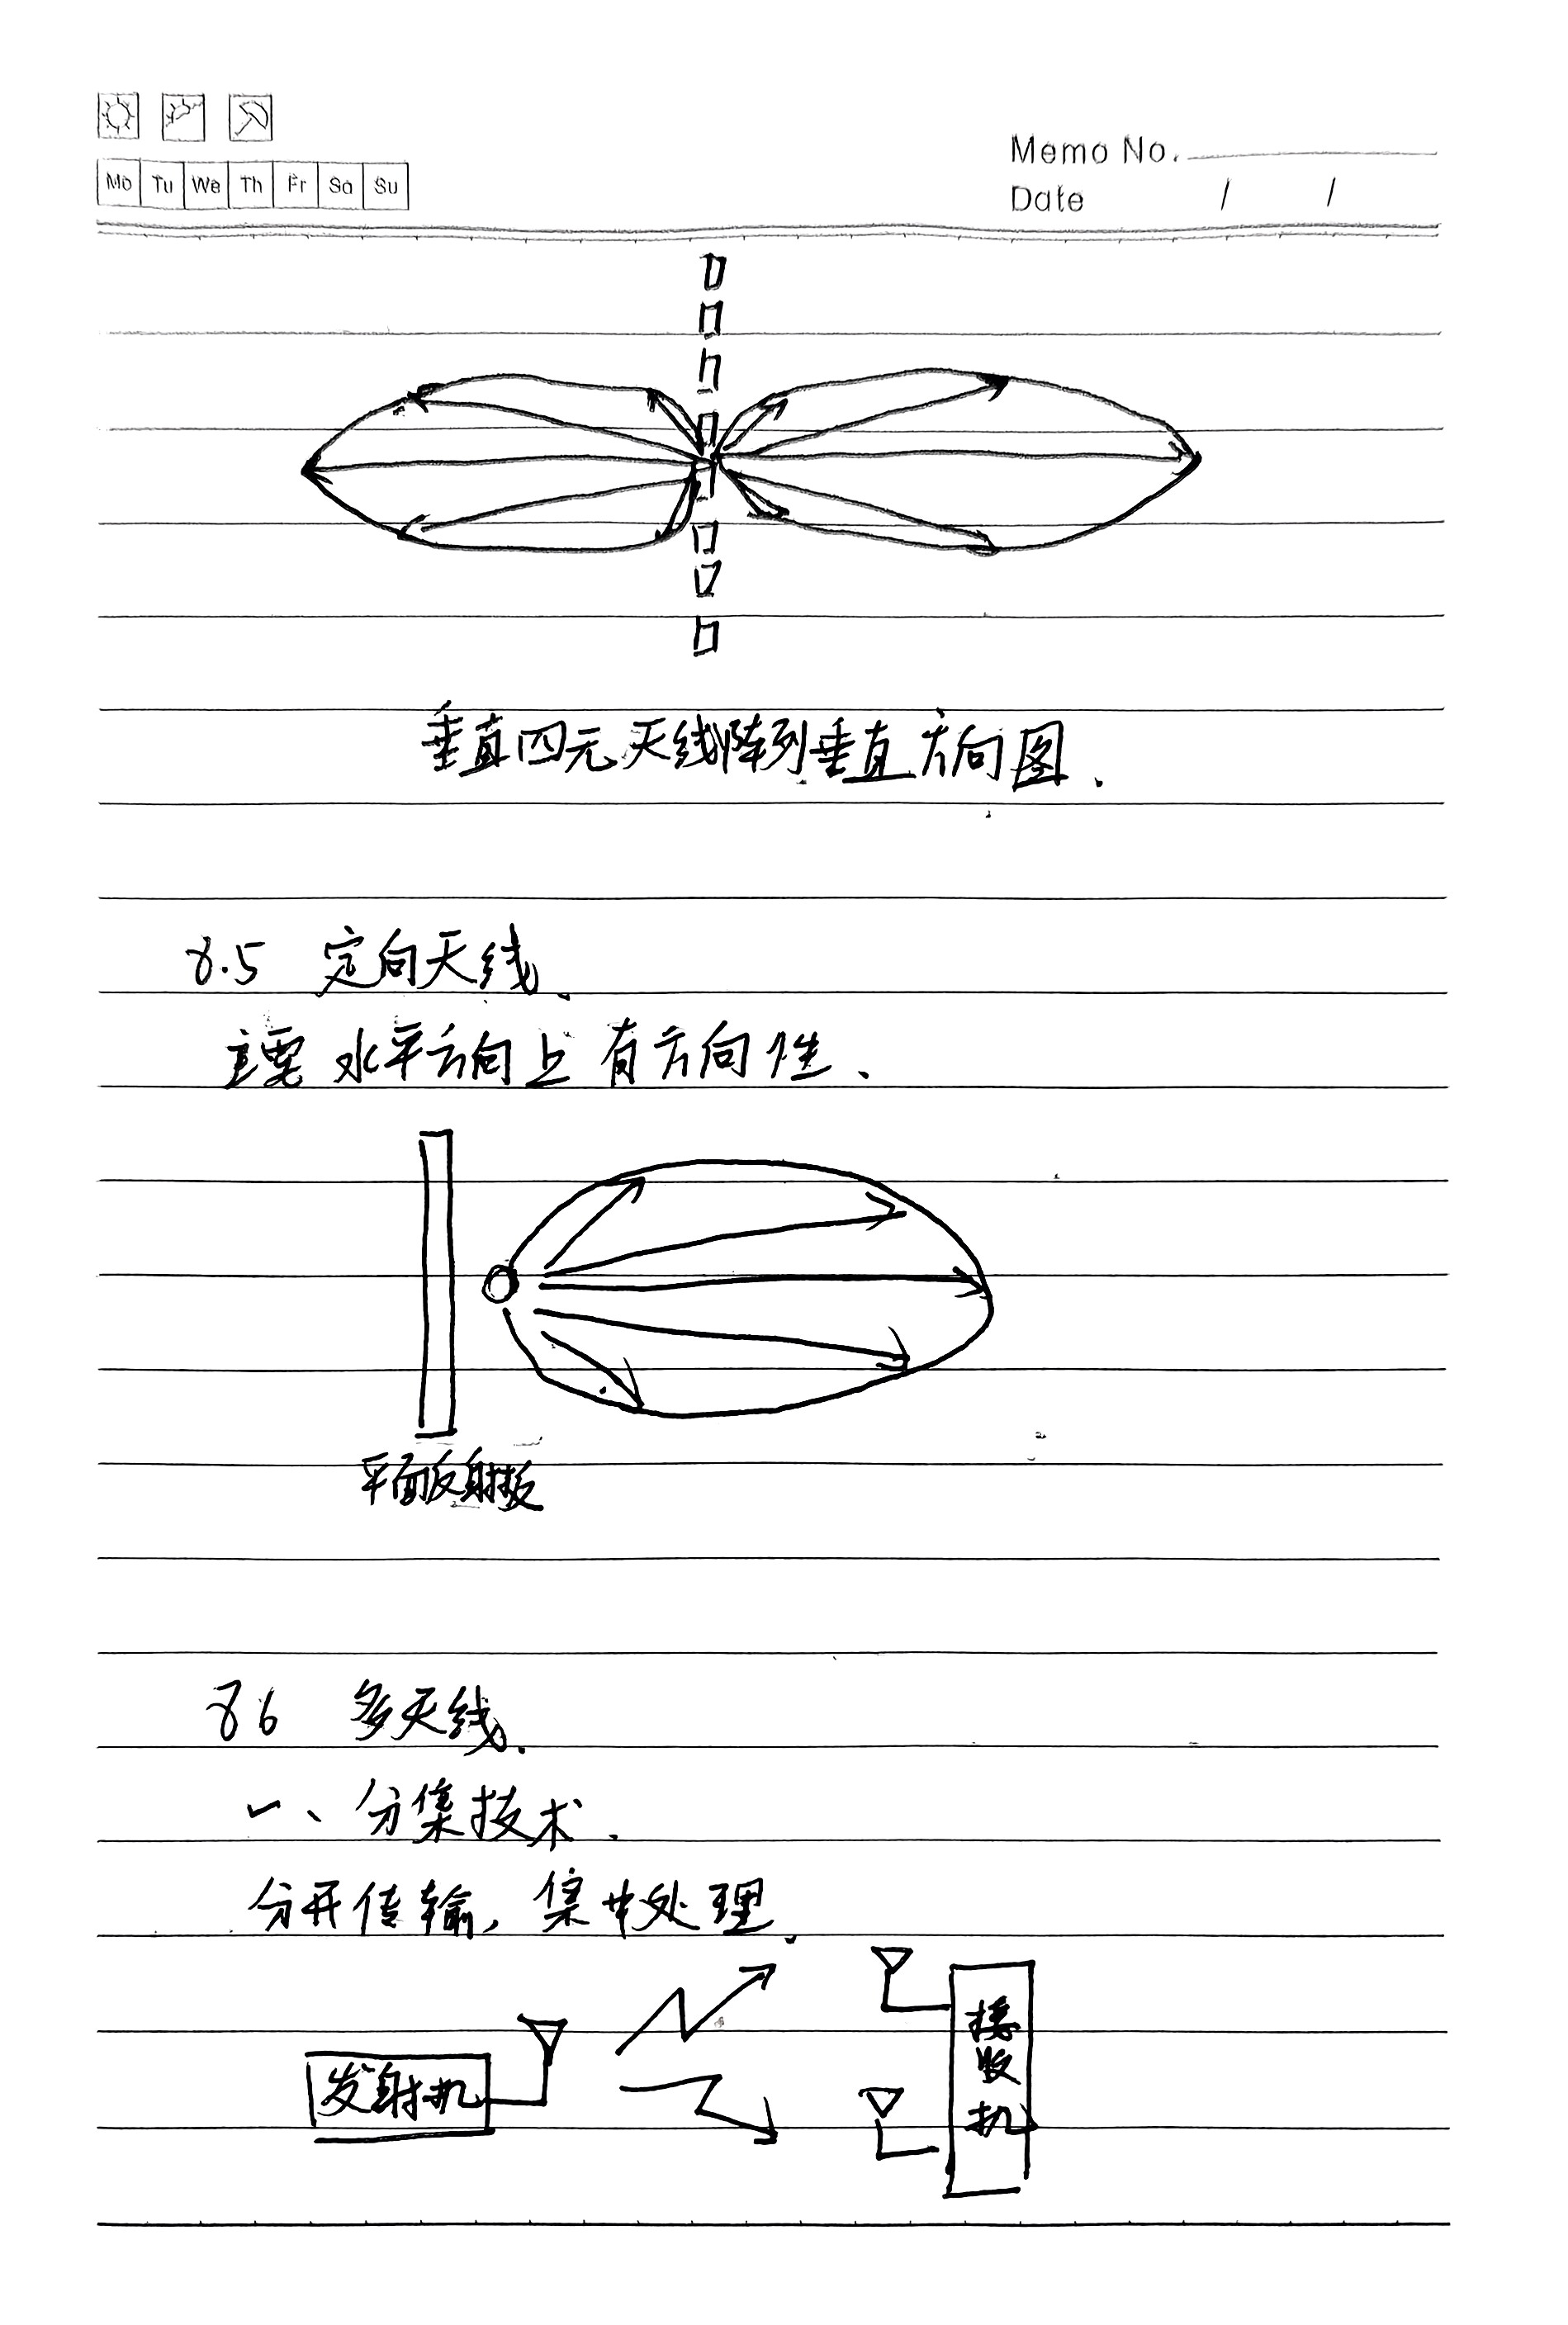 Memo No.
Mo Tu We Th Fr Sa Su
Date / /
垂直四元天线阵列垂直方向图.
8.5 定向天线.
主要水平方向上有方向性.
平面反射板
8.6 多天线.
一、分集技术.
分开传输,集中处理.
发射机
接收机